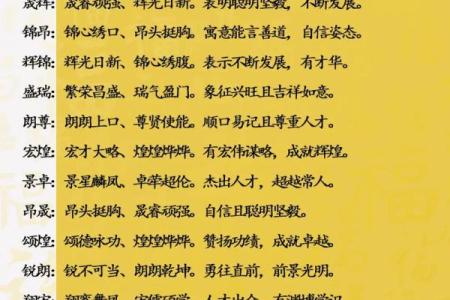 晟辉：晟睿顽强、辉光日新。表明聪明坚毅，不断发展。
锦昂：锦心绣口、昂头挺胸。寓意能言善道、自信姿态。
辉锦：辉光日新、锦心绣腹。表示不断发展、有才华。
盛瑞：繁荣昌盛、瑞气盈门。象征兴旺且吉祥如意。
朗尊：朗朗上口、尊贤使能。顺口易记且尊重人才。
宏煌：宏才大略、煌煌烨烨。有宏伟谋略，成就辉煌。
景卓：景星麟凤、卓荦超伦。杰出人才，超越常人。
昂晟：昂头挺胸、晟睿顽强。自信且聪明坚毅。
颂煌：颂德咏功、煌煌烨烨。赞扬功绩，成就卓越。
锐朗：锐不可当、朗朗乾坤。勇往直前，前景光明。